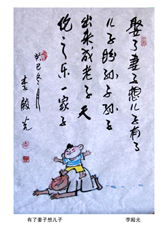 娶了妻子想儿子有了
儿子盼孙子孙子
出来成老子天
伦之乐一家子
癸巳冬月
李殿光
有了妻子想儿子
李殿光